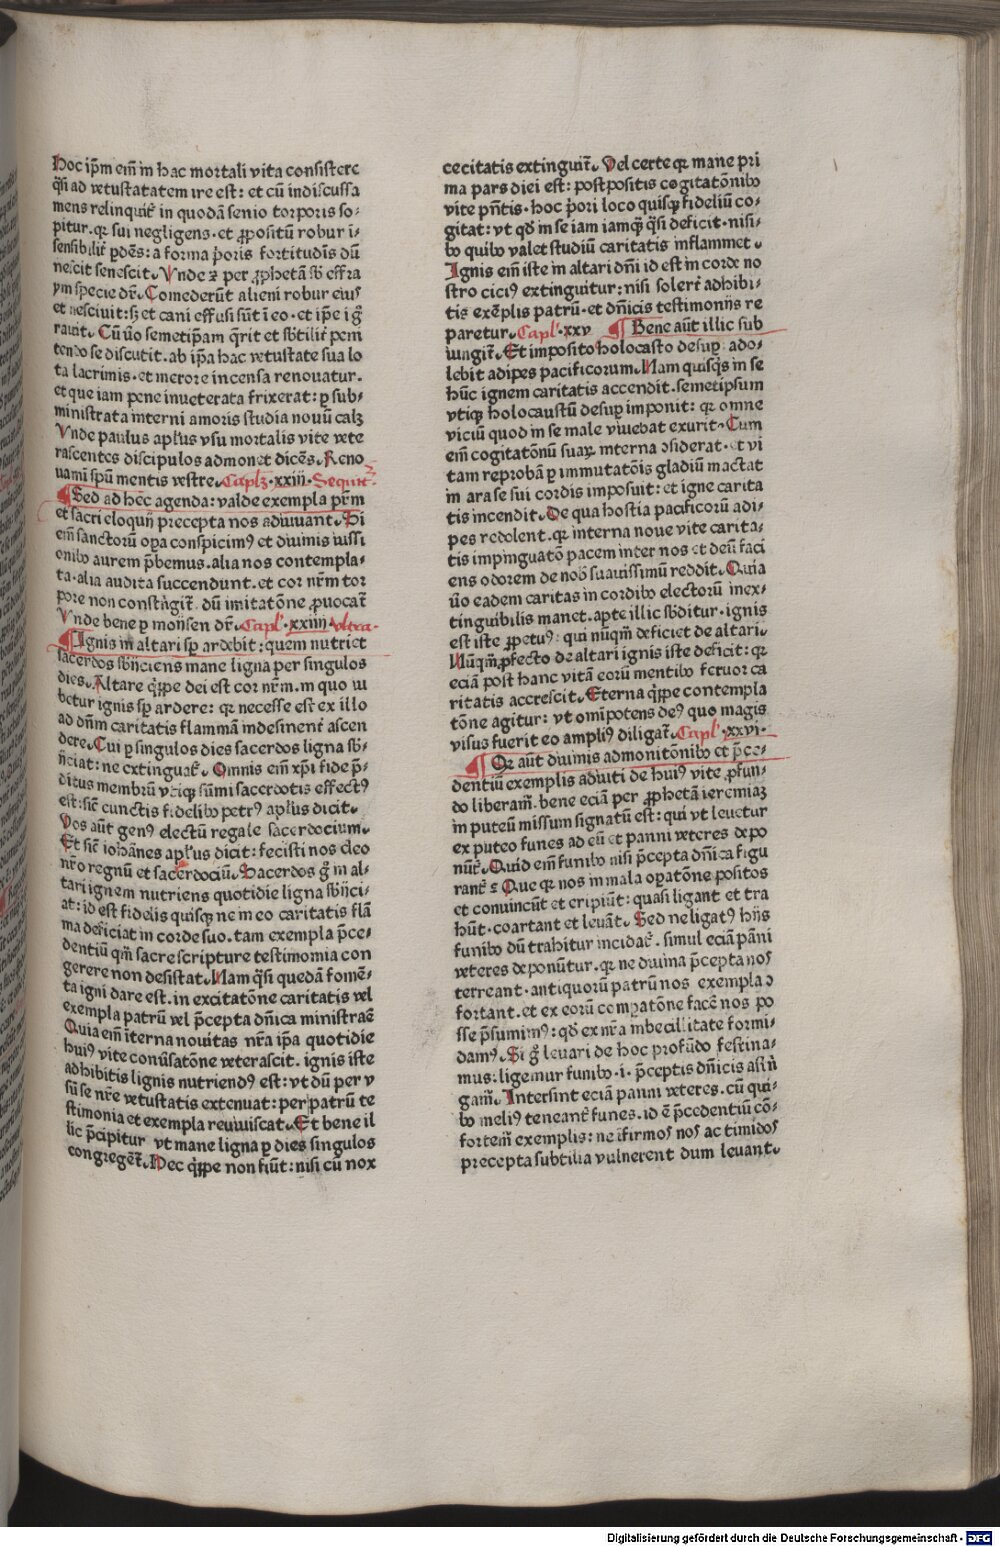 Hoc ip̄m em̄ in hac mortali vita consistere
q̄si ad vetustatatem ire est: et cū indiscussa
mens relinquit᷑ in quodā senio torporis so⸗
pitur. qꝛ sui negligens. et ꝓpositū robur i⸗
sensibilit᷑ ꝑdēs: a forma p̄oris fortitudīs dū
nescit senescit. Vnde ⁊ per ꝓphetā sb̄ effra
ym specie dr̄. Comederūt alieni robur eiꝰ
et nesciuit: sꝫ et cani effusi sūt ī eo. et ip̄e ig̊
rauit. Cū ūo semetip̄am q̄rit et sb̄tilit᷑ peni
tendo se discutit. ab ip̄a hac vetustate sua lo
ta lacrimis. et merore incensa renouatur.
et que iam pene inueterata frixerat: ꝑ sub⸗
ministrata interni amoris studia nouū calꝫ
Vnde paulus apl̄us vsu mortalis vite vete
rascentes discipulos admonet dicēs. Reno
uami sp̄u mentis vestre. Caplꝫ. xxiii. Sequit᷑.
¶ Sed ad hēc agenda: valde exempla pr̄m
et sacri eloquij precepta nos adiuuant. Si
em̄ sanctorū oꝑa conspicimꝰ et diuinis iussi
onibꝰ aurem p̄bemus. alia nos contempla⸗
ta. alia audita succendunt. et cor nr̄m tor
pore non constrīgit᷑. dū imitatōne ꝓuocat᷑
Vnde bene ꝑ moysen dr̄. Capl᷑. xxiiii. vltra.
¶ Ignis in altari sꝑ ardebit: quem nutriet
sacerdos sb̄ijciens mane ligna per singulos
dies. Altare q̄ꝑpe dei est cor nr̄m. in quo iu
betur ignis sꝑ ardere: qꝛ necesse est ex illo
ad dn̄m caritatis flammā indesinent᷑ ascen
dere. Cui ꝑ singulos dies sacerdos ligna sb̄⸗
ijciat: ne extinguat᷑. Omnis em̄ xp̄i fide p̄⸗
ditus membrū vtiqꝫ sūmi sacerdotis effectꝰ
est: sic̄ cunctis fidelibꝰ petrꝰ apl̄us dicit.
Vos aūt genꝰ electū regale sacerdocium.
Et sic̄ iohānes apl̄us dicit: fecisti nos deo
nr̄o regnū et sacerdociū. Sacerdos g̊ in al⸗
tari ignem nutriens quotidie ligna sb̄ijci⸗
at: id est fidelis quisqꝫ ne in eo caritatis flā
ma deficiat in corde suo. tam exempla p̄ce⸗
dentiū qm̄ sacre scripture testimonia con
gerere non desistat. Nam q̄si quedā fomē⸗
ta igni dare est. in excitatōne caritatis vel
exempla patrū vel p̄cepta dn̄ica ministrae
Quia em̄ īterna nouitas nr̄a ip̄a quotidie
huiꝰ vite conūsatōne veterascit. ignis iste
adhibitis lignis nutriendꝰ est: vt dū per v
sū se nr̄e vetustatis extenuat: per patrū te
stimonia et exempla reuiuiscat. Et bene il
lic p̄cipitur vt mane ligna ꝑ dies singulos
congreget᷑. Hec q̄ꝑpe non fiūt: nisi cū nox
cecitatis extinguit᷑. Vel certe qꝛ mane pri
ma pars diei est: postpositis cogitatōnibꝰ
vite pn̄tis. hoc p̄ori loco quisqꝫ fideliū co⸗
gitat: vt qd̄ in se iam iamqꝫ q̄si deficit. nisi⸗
bꝰ quibꝰ valet studiū caritatis inflammet.
Ignis em̄ iste in altari dn̄i id est in corde no
stro ciciꝰ extinguitur: nisi solert᷑ adhibi⸗
tis exēplis patrū. et dn̄icis testimonijs re
paretur. Capl᷑. xxv ¶ Bene aūt illic sub
iungit᷑. Et imposito holocasto desuꝑ ado⸗
lebit adipes pacificorum. Nam quisq̄s in se
hūc ignem caritatis accendit. semetipsum
vtiqꝫ holocaustū desuꝑ imponit: qꝛ omne
viciū quod in se male viuebat exurit. Cum
em̄ cogitatōnū suaꝝ interna ɔsiderat. et vi
tam reprobā ꝑ immutatōis gladiū mactat
in ara se sui cordis imposuit: et igne carita
tis incendit. De qua hostia pacificorū adi⸗
pes redolent. qꝛ interna noue vite carita⸗
tis impinguatō pacem inter nos et deū faci
ens odorem de nob̄ suauissimū reddit. Quia
ūo eadem caritas in cordibꝰ electorū inex⸗
tinguibilis manet. apte illic sb̄ditur. ignis
est iste ꝓpetuꝰ: qui nūqm̄ deficiet de altari.
Nūqm̄ ꝓfecto de altari ignis iste deficit: qꝛ
eciā post hanc vitā eorū mentibꝰ feruor ca
ritatis accrescit. Eterna q̄ꝑpe contempla
tōne agitur: vt om̄ipotens deꝰ quo magis
visus fuerit eo ampliꝰ diligat᷑. Capl᷑. xxvi.
¶ Qꝛ aūt diuinis admonitōnibꝰ et p̄ce⸗
dentiū exemplis adiuti de huiꝰ vite ꝓfun⸗
do liberam᷑. bene eciā per ꝓphetā ieremiaꝫ
in puteū missum signatū est: qui vt leuetur
ex puteo funes ad eū et panni veteres depo
nūt᷑. Quid em̄ funibꝰ nisi p̄cepta dn̄ica figu
rant᷑: Que qꝛ nos in mala oꝑatōne positos
et conuincūt et eripiūt: quasi ligant et tra
hūt. coartant et leuāt. Sed ne ligatꝰ hijs
funibꝰ dū trahitur incidat᷑. simul eciā pāni
veteres deponūtur. qꝛ ne diuina p̄cepta nos
terreant. antiquorū patrū nos exempla ɔ
fortant. et ex eorū comꝑatōne facē nos po
sse p̄sumimꝰ: qd̄ ex nr̄a inbecillitate formi⸗
damꝰ. Si g̊ leuari de hoc profūdo festina⸗
mus: ligemur funibꝰ. i. p̄ceptis dn̄icis astri
gam̄. Intersint eciā panni veteres. cū qui⸗
bꝰ meliꝰ teneant᷑ funes. id ē p̄cedentiū cō⸗
fortem᷑ exemplis: ne īfirmos nos ac timidos
precepta subtilia vulnerent dum leuant.
Digitalisierung gefördert durch die Deutsche Forschungsgemeinschaft - DFG